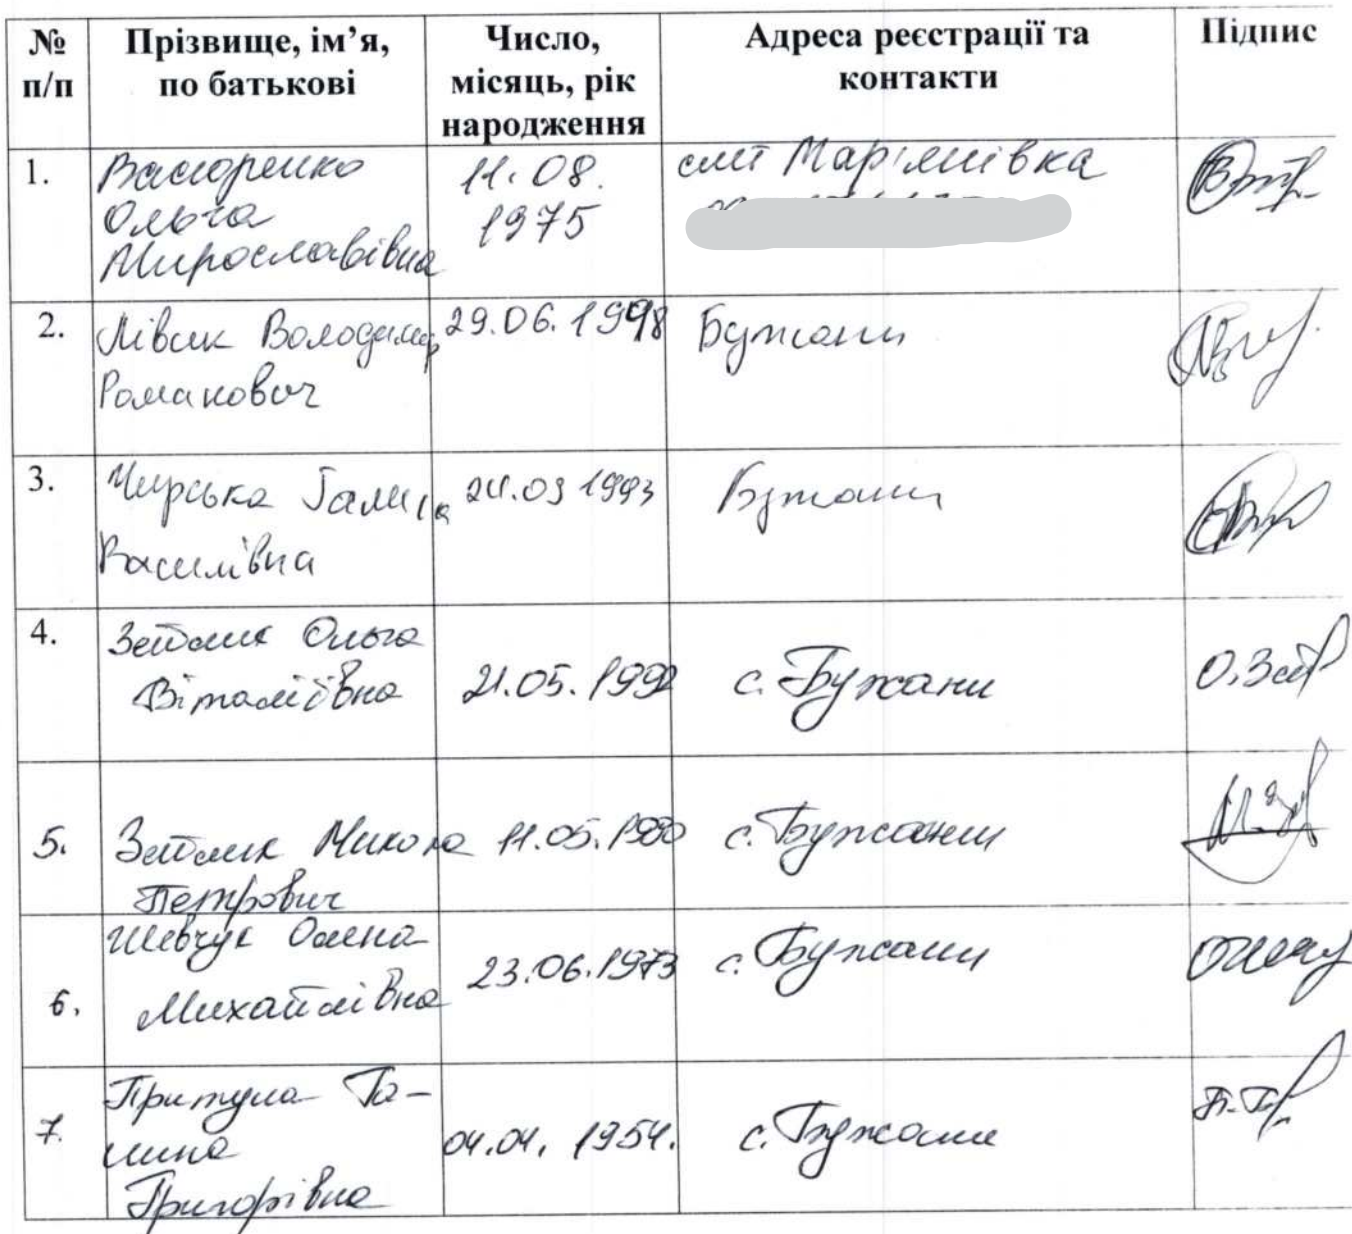 № п/п Прізвище, ім’я, по батькові Число, місяць, рік народження Адреса реєстрації та контакти Підпис
1. Ольга Мирославівна 11.08. 1975 смт Мар'янівка
2. Лівик Володимир Романович 29.06.1998 Бужани
3. Чирська Галина Василівна 24.03 1993 Бужани
4. Ольга Віталіївна 21.05. с. Бужани О.
5. Микола Петрович 11.05. с. Бужани
6. Шевчук Олена Михайлівна 23.06.1973 с. Бужани
7. Притула Га- лина Григорівна 04.04. 1954. с. Бужани